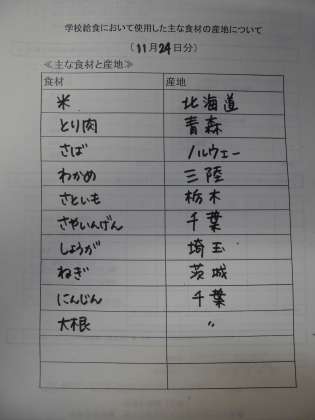 学校給食において使用した主な食材の産地について
(11月24日分)
≪主な食材と産地≫
食材 産地
米 北海道
とり肉 青森
さば ノルウェー
わかめ 三陸
さといも 栃木
さやいんげん 千葉
しょうが 埼玉
ねぎ 茨城
にんじん 千葉
大根 〃